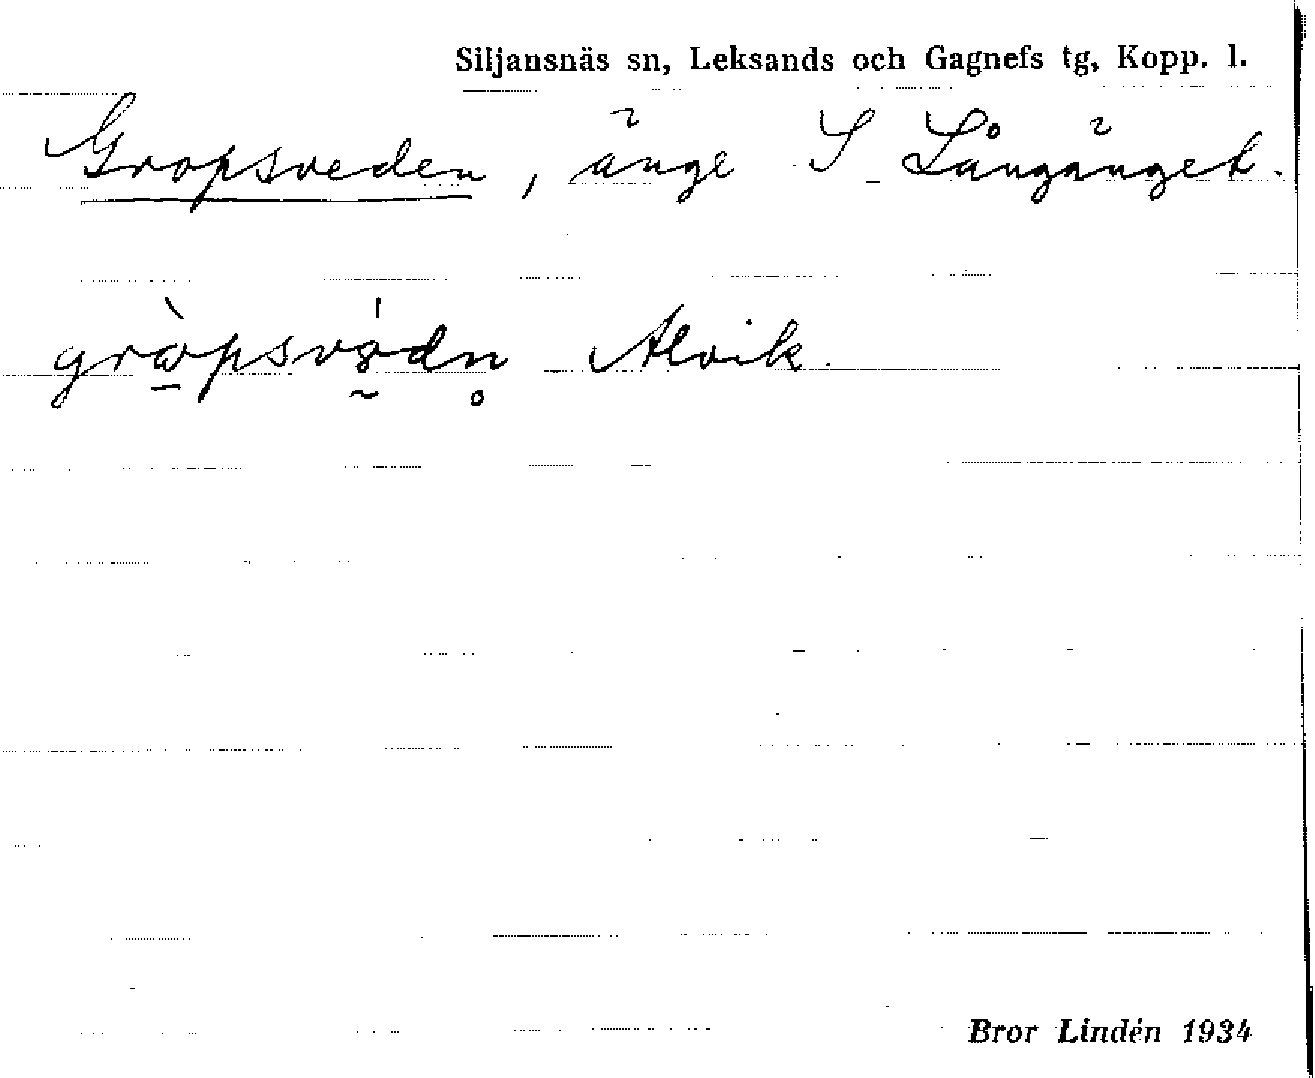 Siljansnäs sn, Leksands och Gagnefs tg, Kopp. l.
Gropsveden, änge S Långänget.
Alvik.
Bror Lindén 1934